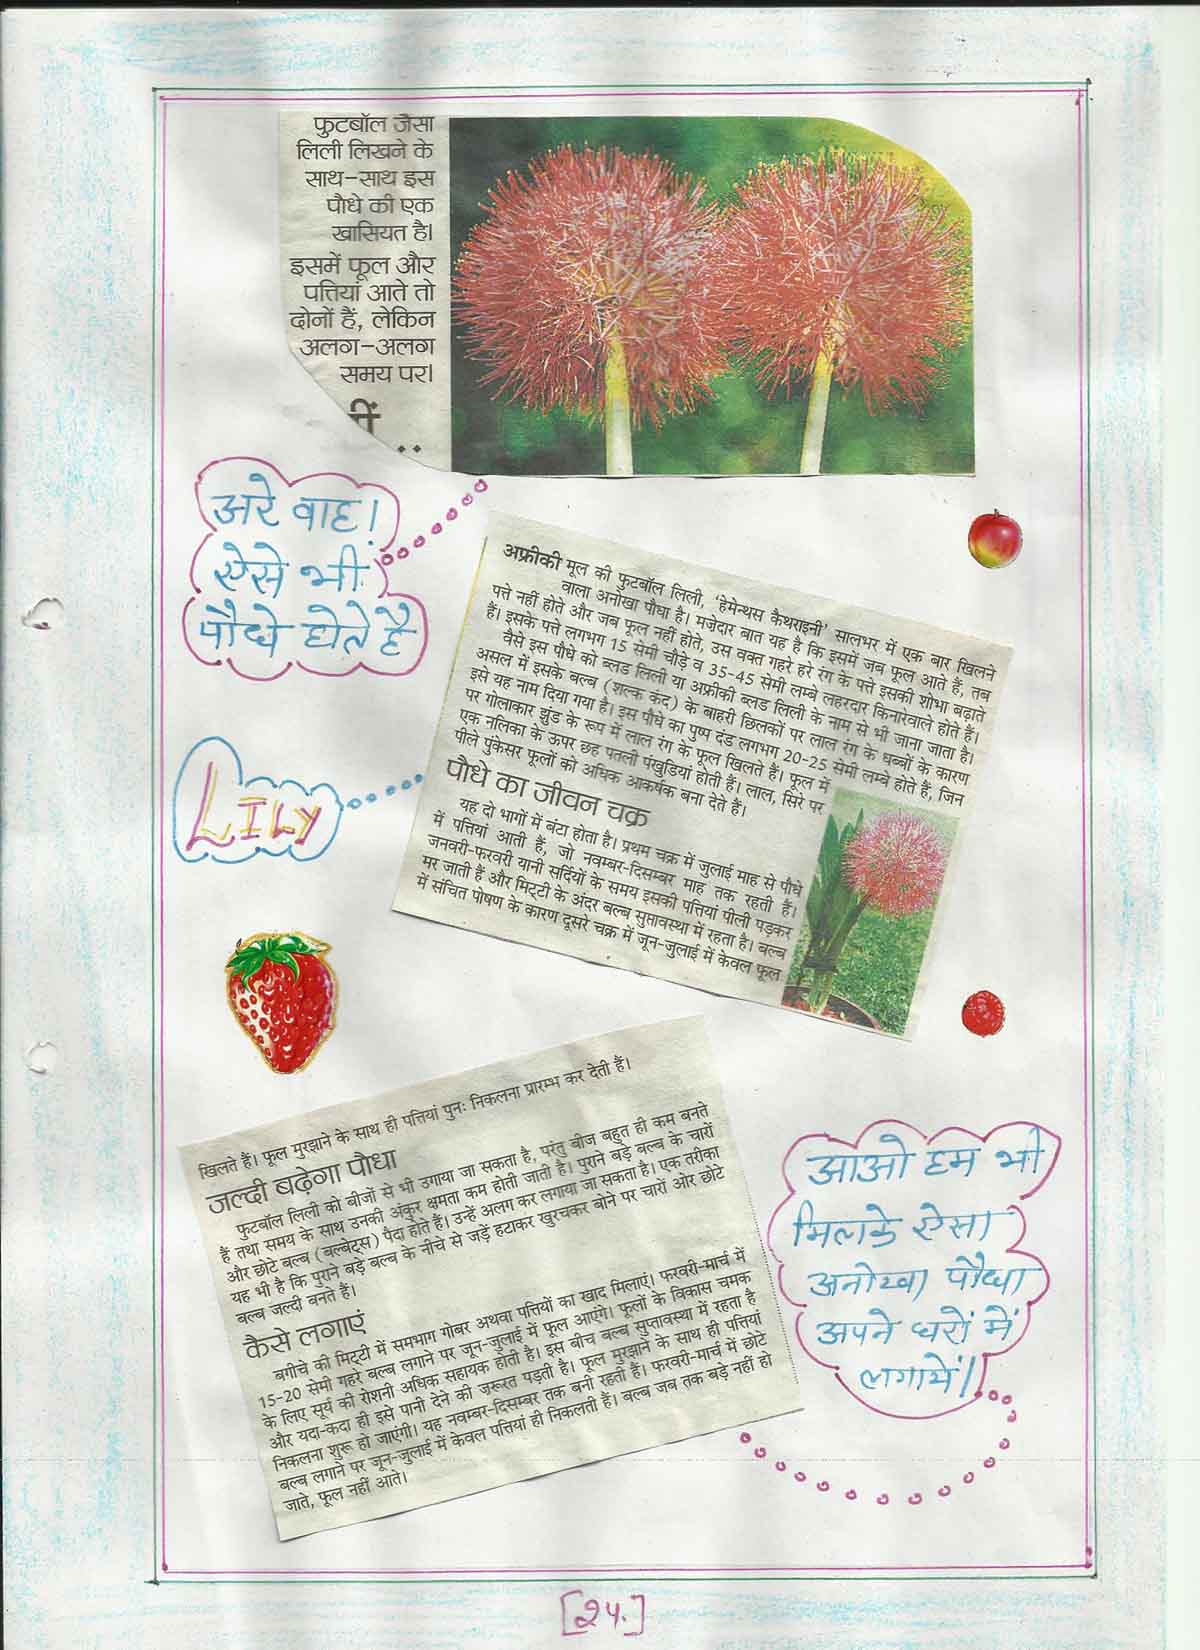 फुटबॉल जैसा
लिली लिखने के
साथ-साथ इस
पौधे की एक
खासियत है।
इसमें फूल और
पत्तियां आते तो
दोनों हैं, लेकिन
अलग-अलग
समय पर।
अरे वाह!
ऐसे भी
पौधे होते है
अफ्रीकी मूल की फुटबॉल लिली, 'हेमेन्थस कैथराइनी' सालभर में एक बार खिलने
वाला अनोखा पौधा है। मजेदार बात यह है कि इसमें जब फूल आते हैं, तब
पत्ते नहीं होते और जब फूल नहीं होते, उस वक्त गहरे हरे रंग के पत्ते इसकी शोभा बढ़ाते
हैं। इसके पत्ते लगभग 15 सेमी चौड़े व 35-45 सेमी लम्बे लहरदार किनारेवाले होते हैं।
वैसे इस पौधे को ब्लड लिली या अफ्रीकी ब्लड लिली के नाम से भी जाना जाता है।
असल में इसके बल्ब (शल्क कंद) के बाहरी छिलकों पर लाल रंग के धब्बों के कारण
इसे यह नाम दिया गया है। इस पौधे का पुष्प दंड लगभग 20-25 सेमी लम्बे होते हैं, जिन
पर गोलाकार झुंड के रूप में लाल रंग के फूल खिलते हैं। फूल में
एक नलिका के ऊपर छह पतली पंखुडियां होती हैं। लाल, सिरे पर
पीले पुंकेसर फूलों को अधिक आकर्षक बना देते हैं।
पौधे का जीवन चक्र
यह दो भागों में बंटा होता है। प्रथम चक्र में जुलाई माह से पौधे
में पत्तियां आती हैं, जो नवम्बर-दिसम्बर माह तक रहती हैं।
जनवरी-फरवरी यानी सर्दियों के समय इसकी पत्तियां पीली पड़कर
मर जाती हैं और मिट्टी के अंदर बल्ब सुप्तावस्था में रहता है। बल्ब
में संचित पोषण के कारण दूसरे चक्र में जून-जुलाई में केवल फूल
LILY
खिलते हैं। फूल मुरझाने के साथ ही पत्तियां पुनः निकलना प्रारम्भ कर देती हैं।
जल्दी बढ़ेगा पौधा
फुटबॉल लिली को बीजों से भी उगाया जा सकता है, परंतु बीज बहुत ही कम बनते
हैं तथा समय के साथ उनकी अंकुर क्षमता कम होती जाती है। पुराने बड़े बल्ब के चारों
और छोटे बल्ब (बल्बेट्स) पैदा होते हैं। उन्हें अलग कर लगाया जा सकता है। एक तरीका
यह भी है कि पुराने बड़े बल्ब के नीचे से जड़ें हटाकर खुरचकर बोने पर चारों ओर छोटे
बल्ब जल्दी बनते हैं।
कैसे लगाएं
बगीचे की मिट्टी में समभाग गोबर अथवा पत्तियों का खाद मिलाएं। फरवरी-मार्च में
15-20 सेमी गहरे बल्ब लगाने पर जून-जुलाई में फूल आएंगे। फूलों के विकास चमक
के लिए सूर्य की रोशनी अधिक सहायक होती है। इस बीच बल्ब सुप्तावस्था में रहता है
और यदा-कदा ही इसे पानी देने की जरूरत पड़ती है। फूल मुरझाने के साथ ही पत्तियां
निकलना शुरू हो जाएंगी। यह नवम्बर-दिसम्बर तक बनी रहती हैं। फरवरी-मार्च में छोटे
बल्ब लगाने पर जून-जुलाई में केवल पत्तियां ही निकलती हैं। बल्ब जब तक बड़े नहीं हो
जाते, फूल नहीं आते।
आओ हम भी
मिलके ऐसा
अनोखा पौधा
अपने घरों में
लगायें।
[२५.]